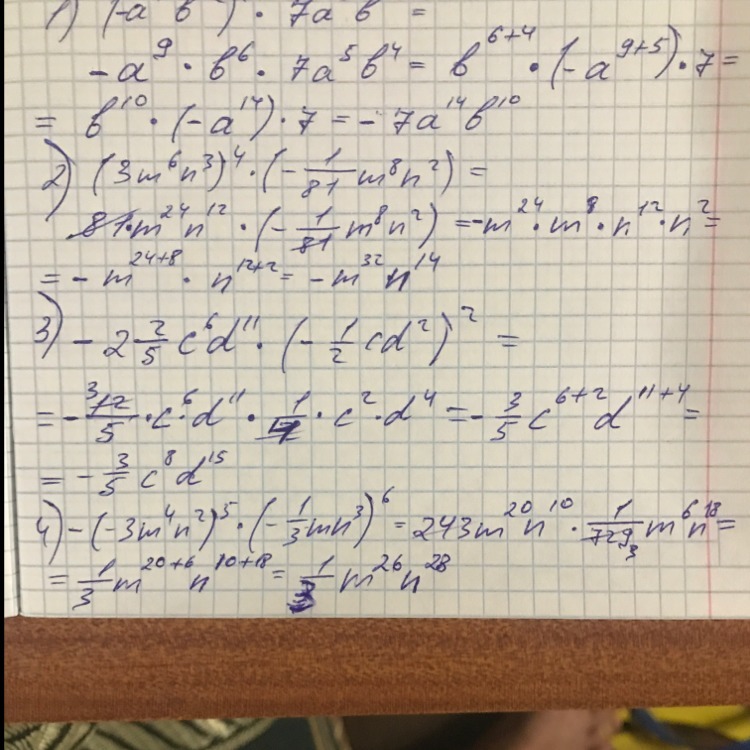 1) (-a b ) · 7a b =
-a⁹ · b⁶ · 7a⁵b⁴ = b⁶⁺⁴ · (-a⁹⁺⁵) · 7 =
= b¹⁰ · (-a¹⁴) · 7 = -7a¹⁴b¹⁰
2) (3m⁶n³)⁴ · (-1/81 m⁸n²) =
81·m²⁴n¹² · (-1/81 m⁸n²) = -m²⁴ · m⁸ · n¹² · n² =
= -m²⁴⁺⁸ · n¹²⁺² = -m³²n¹⁴
3) -2 2/5 c⁶d¹¹ · (-1/2 cd²)² =
= - ³12/5 · c⁶·d¹¹ · 1/4 · c² · d⁴ = -3/5 c⁶⁺²d¹¹⁺⁴ =
= -3/5 c⁸d¹⁵
4) -(-3m⁴n²)⁵ · (-1/3 mn³)⁶ = 243m²⁰n¹⁰ · 1/729₃ m⁶n¹⁸ =
= 1/3 m²⁰⁺⁶n¹⁰⁺¹⁸ = 1/3 m²⁶n²⁸